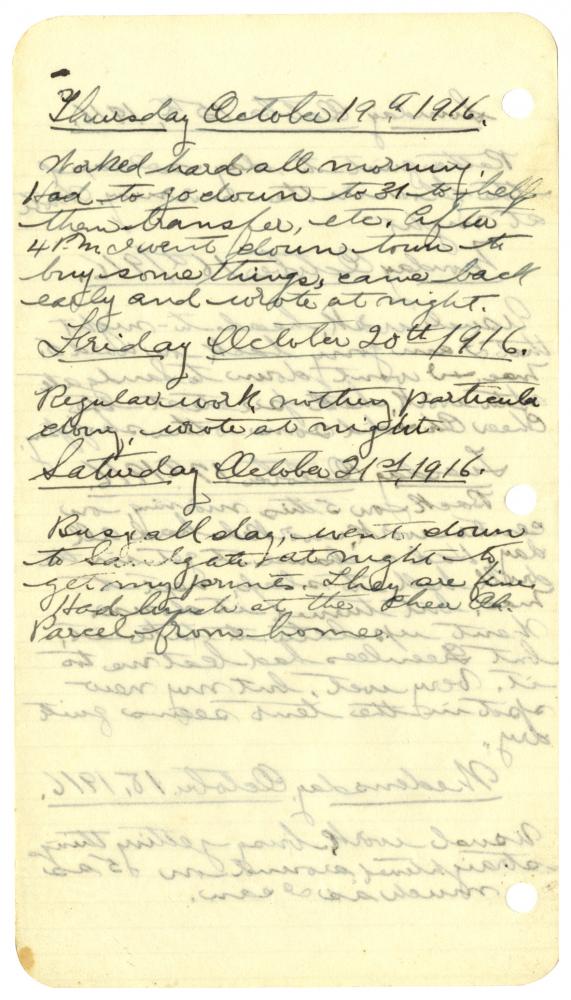 Thursday October 19th 1916.
Worked hard all morning.
Had to go down to 31 to help
them transfer, etc. After
4 P.m I went down town to
buy some things, came back
early and wrote at night.
Friday October 20th 1916.
Regular work, nothing particular
doing, wrote at night.
Saturday October 21st, 1916.
Busy all day, went down
to Sandgate at night to
get my prints. They are fine.
Had lunch at the
Parcel from home.